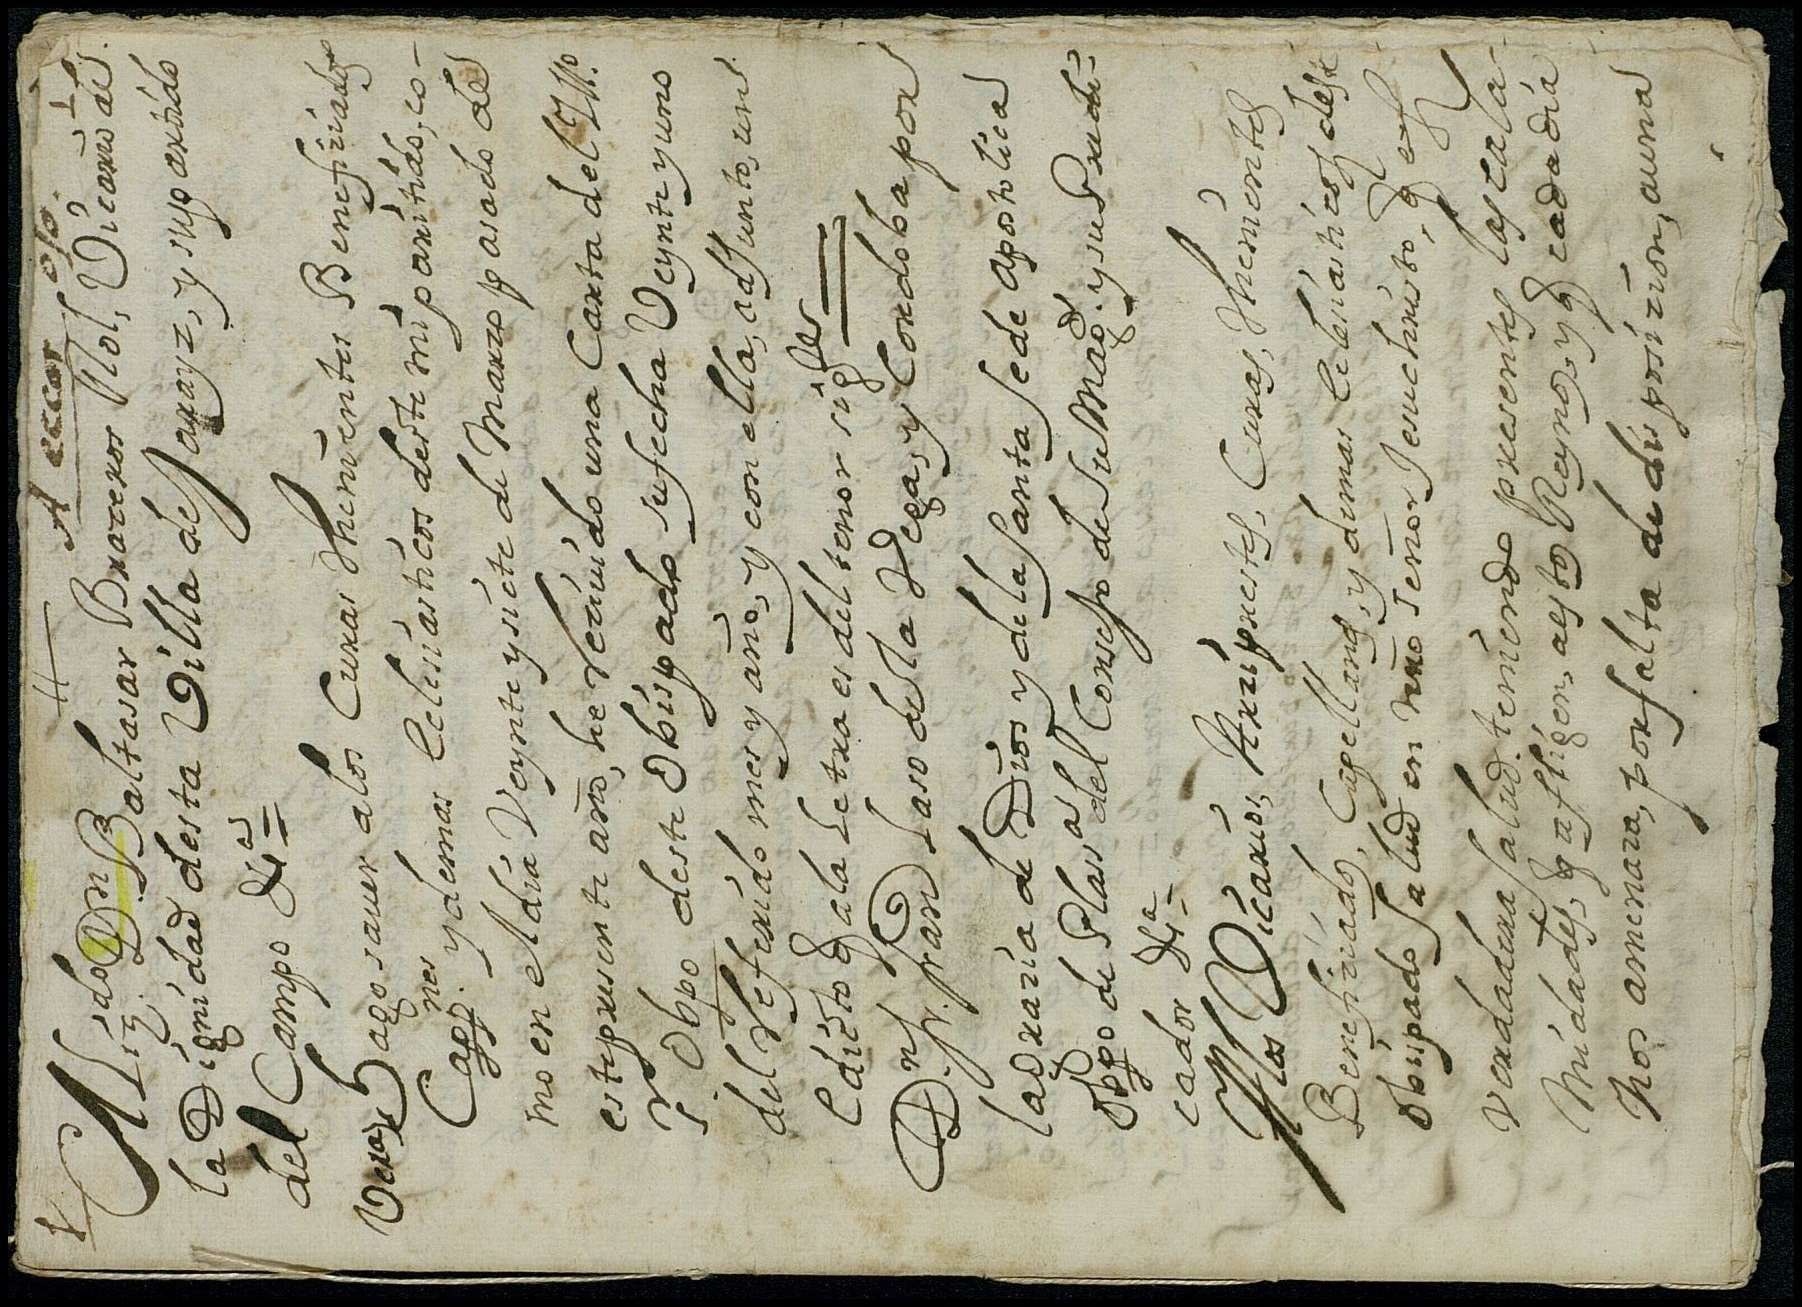 A eccar o/o. 1
Lizdo Dn Baltasar Braceros Mol, Vicario de
la Dignidad desta Villa de Jarayz, y supartido
del Campo &a
Vera Hago sauer alos Curas thenientes Benefiziados
Cappnes y demas Eclesiasticos deste mi partido, co-
mo en el dia Veynte y siete de Marzo pasado de
este presente año, he recivido una Carta del Ill.mo
Sr Obpo deste Obispado su fecha Veynte y uno
del referido mes y año, y con ella, adjunto, un
Edicto q ala Letra es del tenor sigte
Dn fr. fran Laso dela Vega, y Cordoba por
la gracia de Dios y dela Santa Sede apostolica
Obpo de Plasa del Consejo de su Magd. y su Predi-
cador &a
A los Vicarios, Arziprestes, Curas, thenientes
Benefiziados, Capellanes, y demas Eclesiasticos deste
Obispado Salud en nro Señor Jesuchristo, q es
verdadera salud. teniendo presentes las cala-
midades, q aflixen, aesto Reyno, y q cada dia
nos amenaza, por falta de disposizion, auna